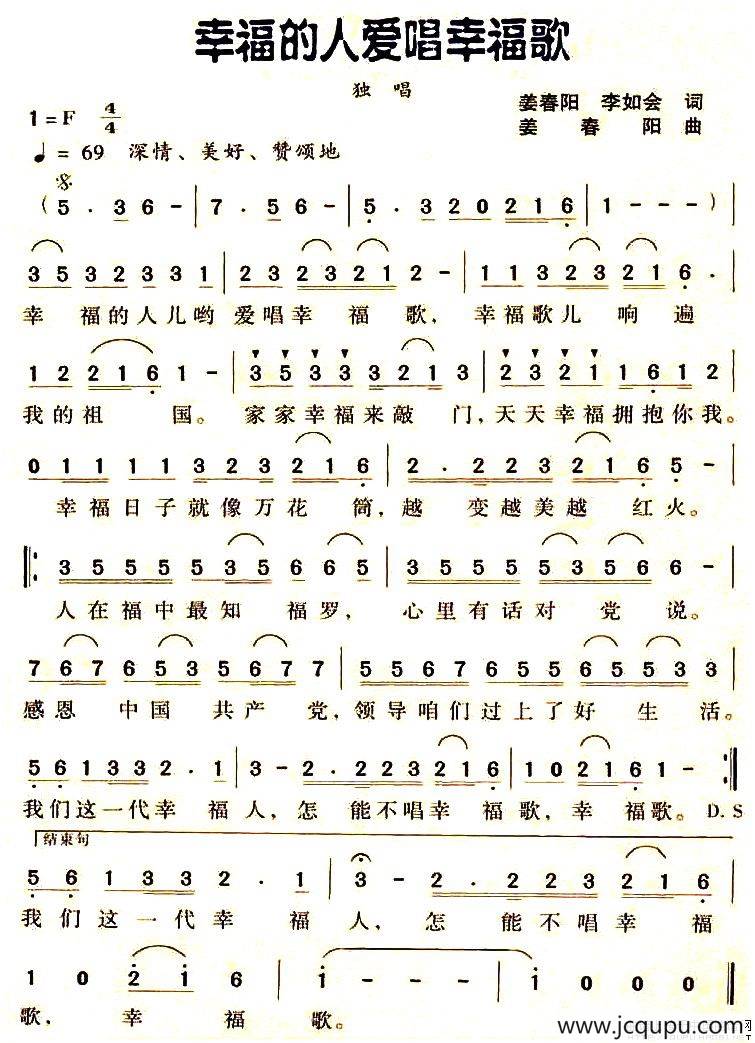 幸福的人爱唱幸福歌
独 唱
姜春阳 李如会 词
1=F 4/4
姜 春 阳 曲
♩=69 深情、美好、赞颂地
(5·36- | 7·56- | 5·3 2 0 2 1 6 | 1---) |
3 5 3 2 3 3 1 | 2 3 2 3 2 1 2- | 1 1 3 2 3 2 1 6·
幸 福的人儿哟 爱唱幸 福 歌, 幸福歌儿 响 遍
1 2 2 1 6 1- | 3 5 3 3 3 2 1 3 | 2 3 2 1 1 6 1 2
我的祖 国。 家家幸福来敲 门,天天幸福拥抱你我。
0 1 1 1 1 3 2 3 2 1 6 | 2·2 2 3 2 1 6 5-
幸福日子就像万花 筒,越 变越美越 红火。
3 5 5 5 5 5 3 5 6 5 6 5 | 3 5 5 5 5 3 5 6 6-
人在福中最知 福罗, 心里有话对 党 说。
7 6 7 6 5 3 5 7 6 7 5 3 | 5 5 6 7 6 5 5 6 5 5 3 3
感恩 中国 共产 党,领导咱们过上了好 生 活。
5 6 1 3 3 2·1 | 3-2·2 2 3 2 1 6 | 1 0 2 1 6 1-
我们这一代幸 福人,怎 能不唱幸 福歌,幸 福歌。D.S
结束句
5 6 1 3 3 2·1 | 3-2·2 2 3 2 1 6
我们这一代幸 福 人, 怎 能不唱幸 福
1 0 2 1 6 | 1--- | 1 0 0 0
歌, 幸 福 歌。
www.jcqupu.com